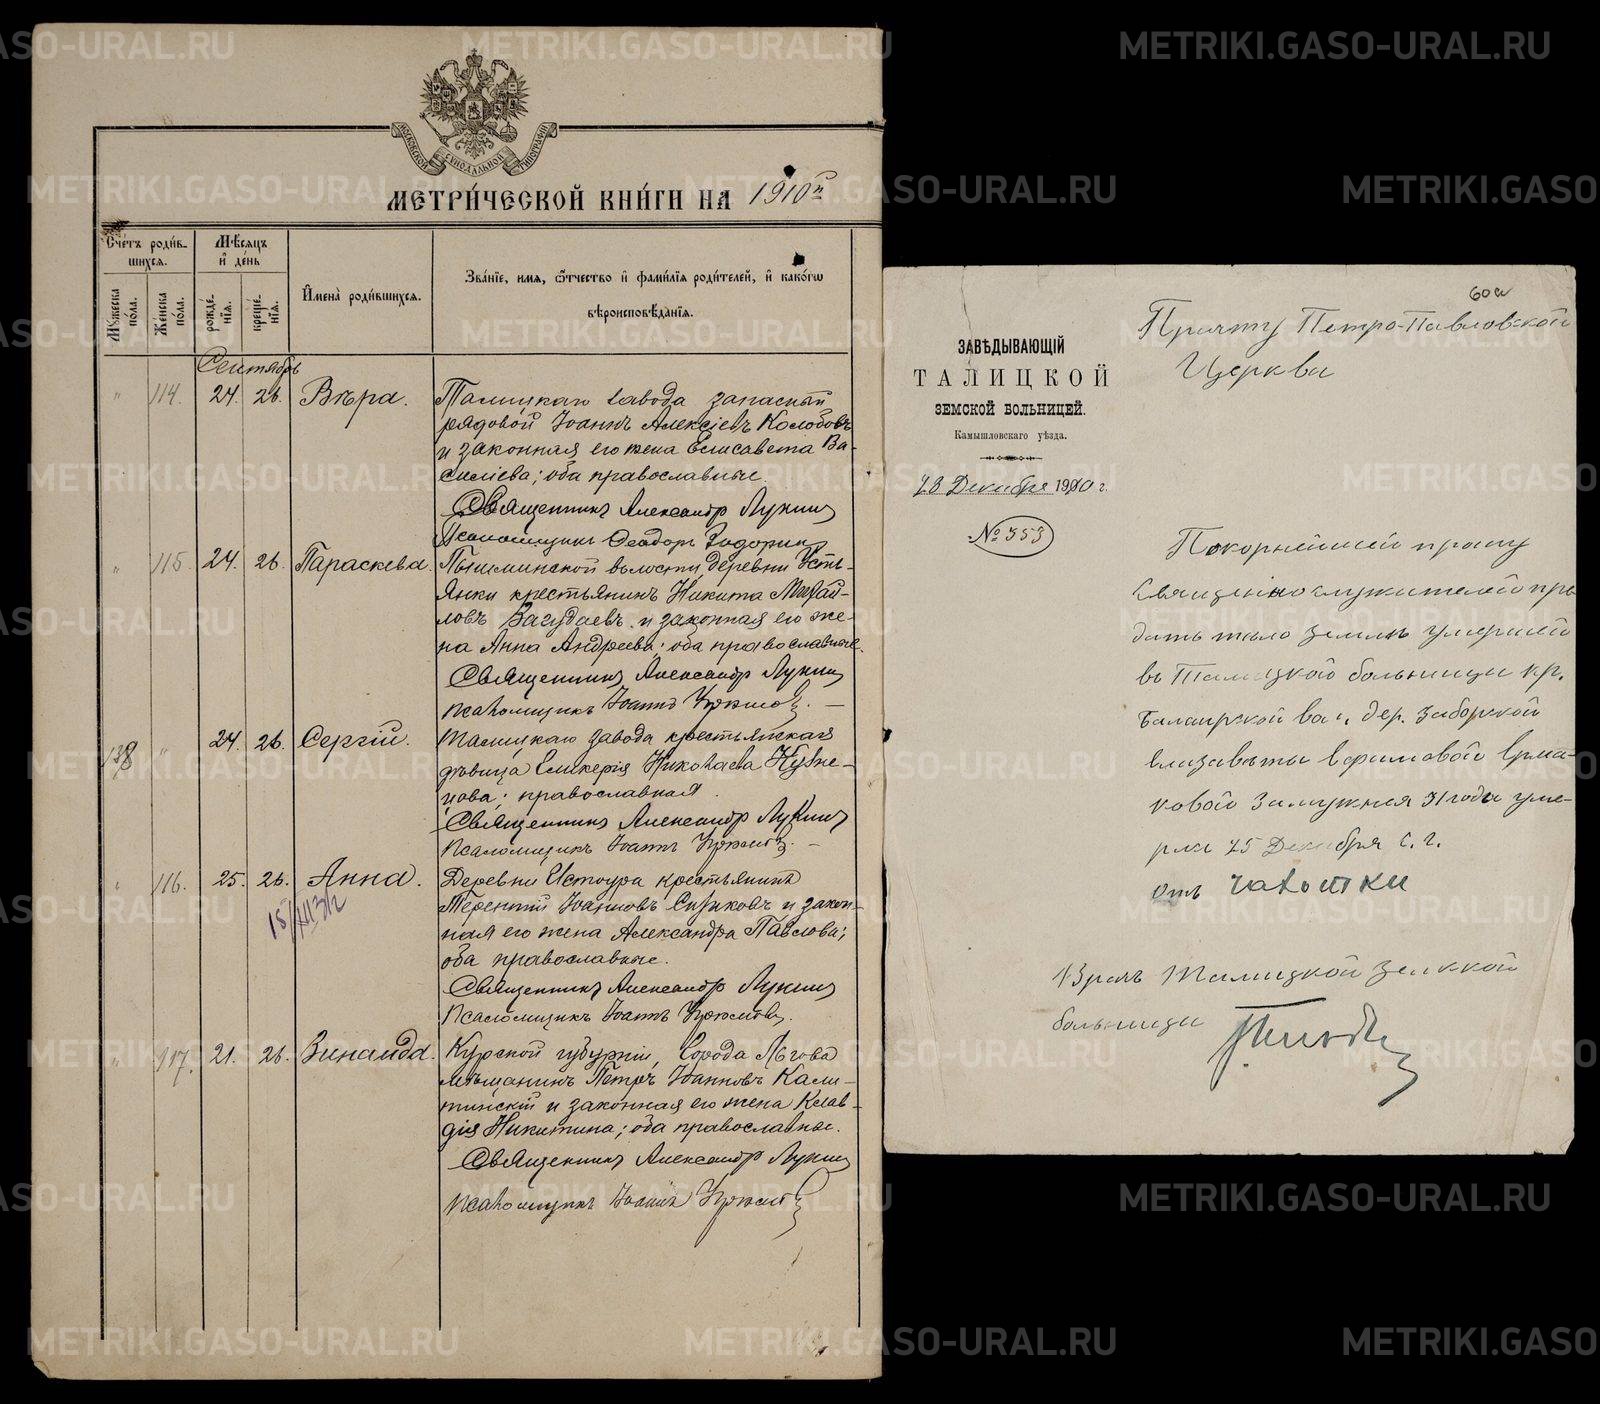 МОСКОВСКОЙ СУНОДАЛЬНОЙ ТИПОГРАФІИ
МЕТРИ́ЧЕСКОЙ КНИ́ГИ НА 1910 г.
Счетъ роди́вшихся.
Мѣсяцъ и день
Имена роди́вшихся.
Зва́нїе, имя, ѻтчество и фами́лїя роди́телей, и како́гѡ вѣроисповѣ́данїя.
Мужеска пола.
Женска пола.
рожде́нїя.
креще́нїя.
Сентябрь
" 114. 24. 26. Вѣра.
Талицкаго завода запасный
рядовой Іоаннъ Алексіевъ Колобовъ
и законная его жена Елисавета Ва-
силіева; оба православные.
Священникъ Александр Лукинъ
Псаломщикъ Ѳеодоръ
" 115. 24. 26. Параскева.
Пышминской волости, деревни Усть-
Янки крестьянинъ Никита Михай-
ловъ и законная его же-
на Анна Андреева; оба православные.
Священникъ Александр Лукинъ
Псаломщикъ Іоаннъ
138 " 24. 26. Сергій.
Талицкаго завода крестьянская
дѣвица Гликерія Николаева Кузне-
цова; православная.
Священникъ Александр Лукинъ
Псаломщикъ Іоаннъ
" 116. 25. 26. Анна.
Деревни Истоура крестьянинъ
Терентій Іоанновъ и закон-
ная его жена Александра Павлова;
оба православные.
Священникъ Александр Лукинъ
Псаломщикъ Іоаннъ
" 117. 21. 26. Зинаида.
Курской губерніи, города Льгова
мѣщанинъ Петръ Іоанновъ Кали-
тинскій и законная его жена Клав-
дія Никитина; оба православные.
Священникъ Александр Лукинъ
Псаломщикъ Іоаннъ
60а
ЗАВѢДЫВАЮЩІЙ
ТАЛИЦКОЙ
ЗЕМСКОЙ БОЛЬНИЦЕЙ.
Камышловскаго уѣзда.
28 Декабря 1910 г.
№ 353
Причту Петро-Павловской
Церкви
Покорнейшей прошу
Священнослужителей пре
дать тѣло землѣ умершей
въ Талицкой больницы кр.
Балаирской вол. дер. Заборской
Елизаветы Ефимовой Ерма-
ковой замужняя 31 года уме-
рла 25 Декабря с. г.
отъ чахотки
Врачъ Талицкой земской
больницы
METRIKI.GASO-URAL.RU